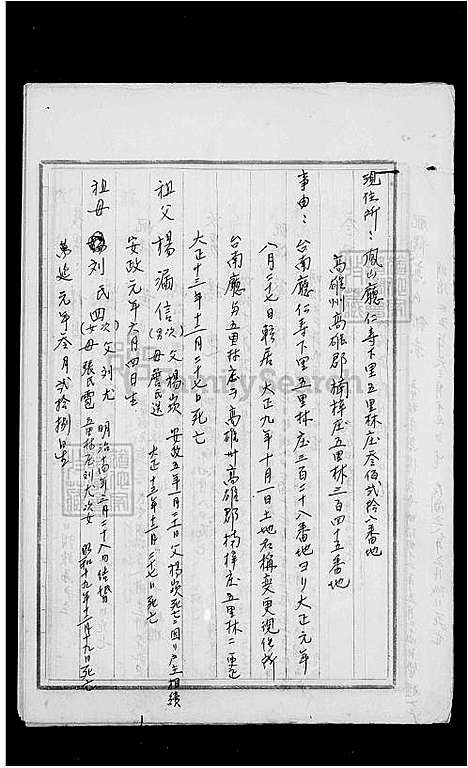 現住所：鳳山廳仁壽下里五里林庄叁佰弍拾八番地
高雄州高雄郡楠梓庄五里林三百四十五番地
事由：台南廳仁壽下里五里林庄三百二十八番地ヨリ大正元年
八月二十七日轉居 大正九年十月一日土地名稱変更現住所
台南廳 五里林庄ヲ高雄州高雄郡楠梓庄五里林ニ更正
大正十三年十二月二十七日死亡
祖父 楊漏信（次男 父楊崁 母詹氏送） 安政五年一月二十日父楊崁死亡ニ因リ戶主相續
大正十三年十二月二十七日死亡
安政元年六月四日生
祖母 劉氏四（次女 父劉尤 母張氏雹） 明治十四年三月二十八日結婚
五里林庄劉尤次女 昭和十九年十二月十九日死亡
萬延元年叁月弍拾捌日生